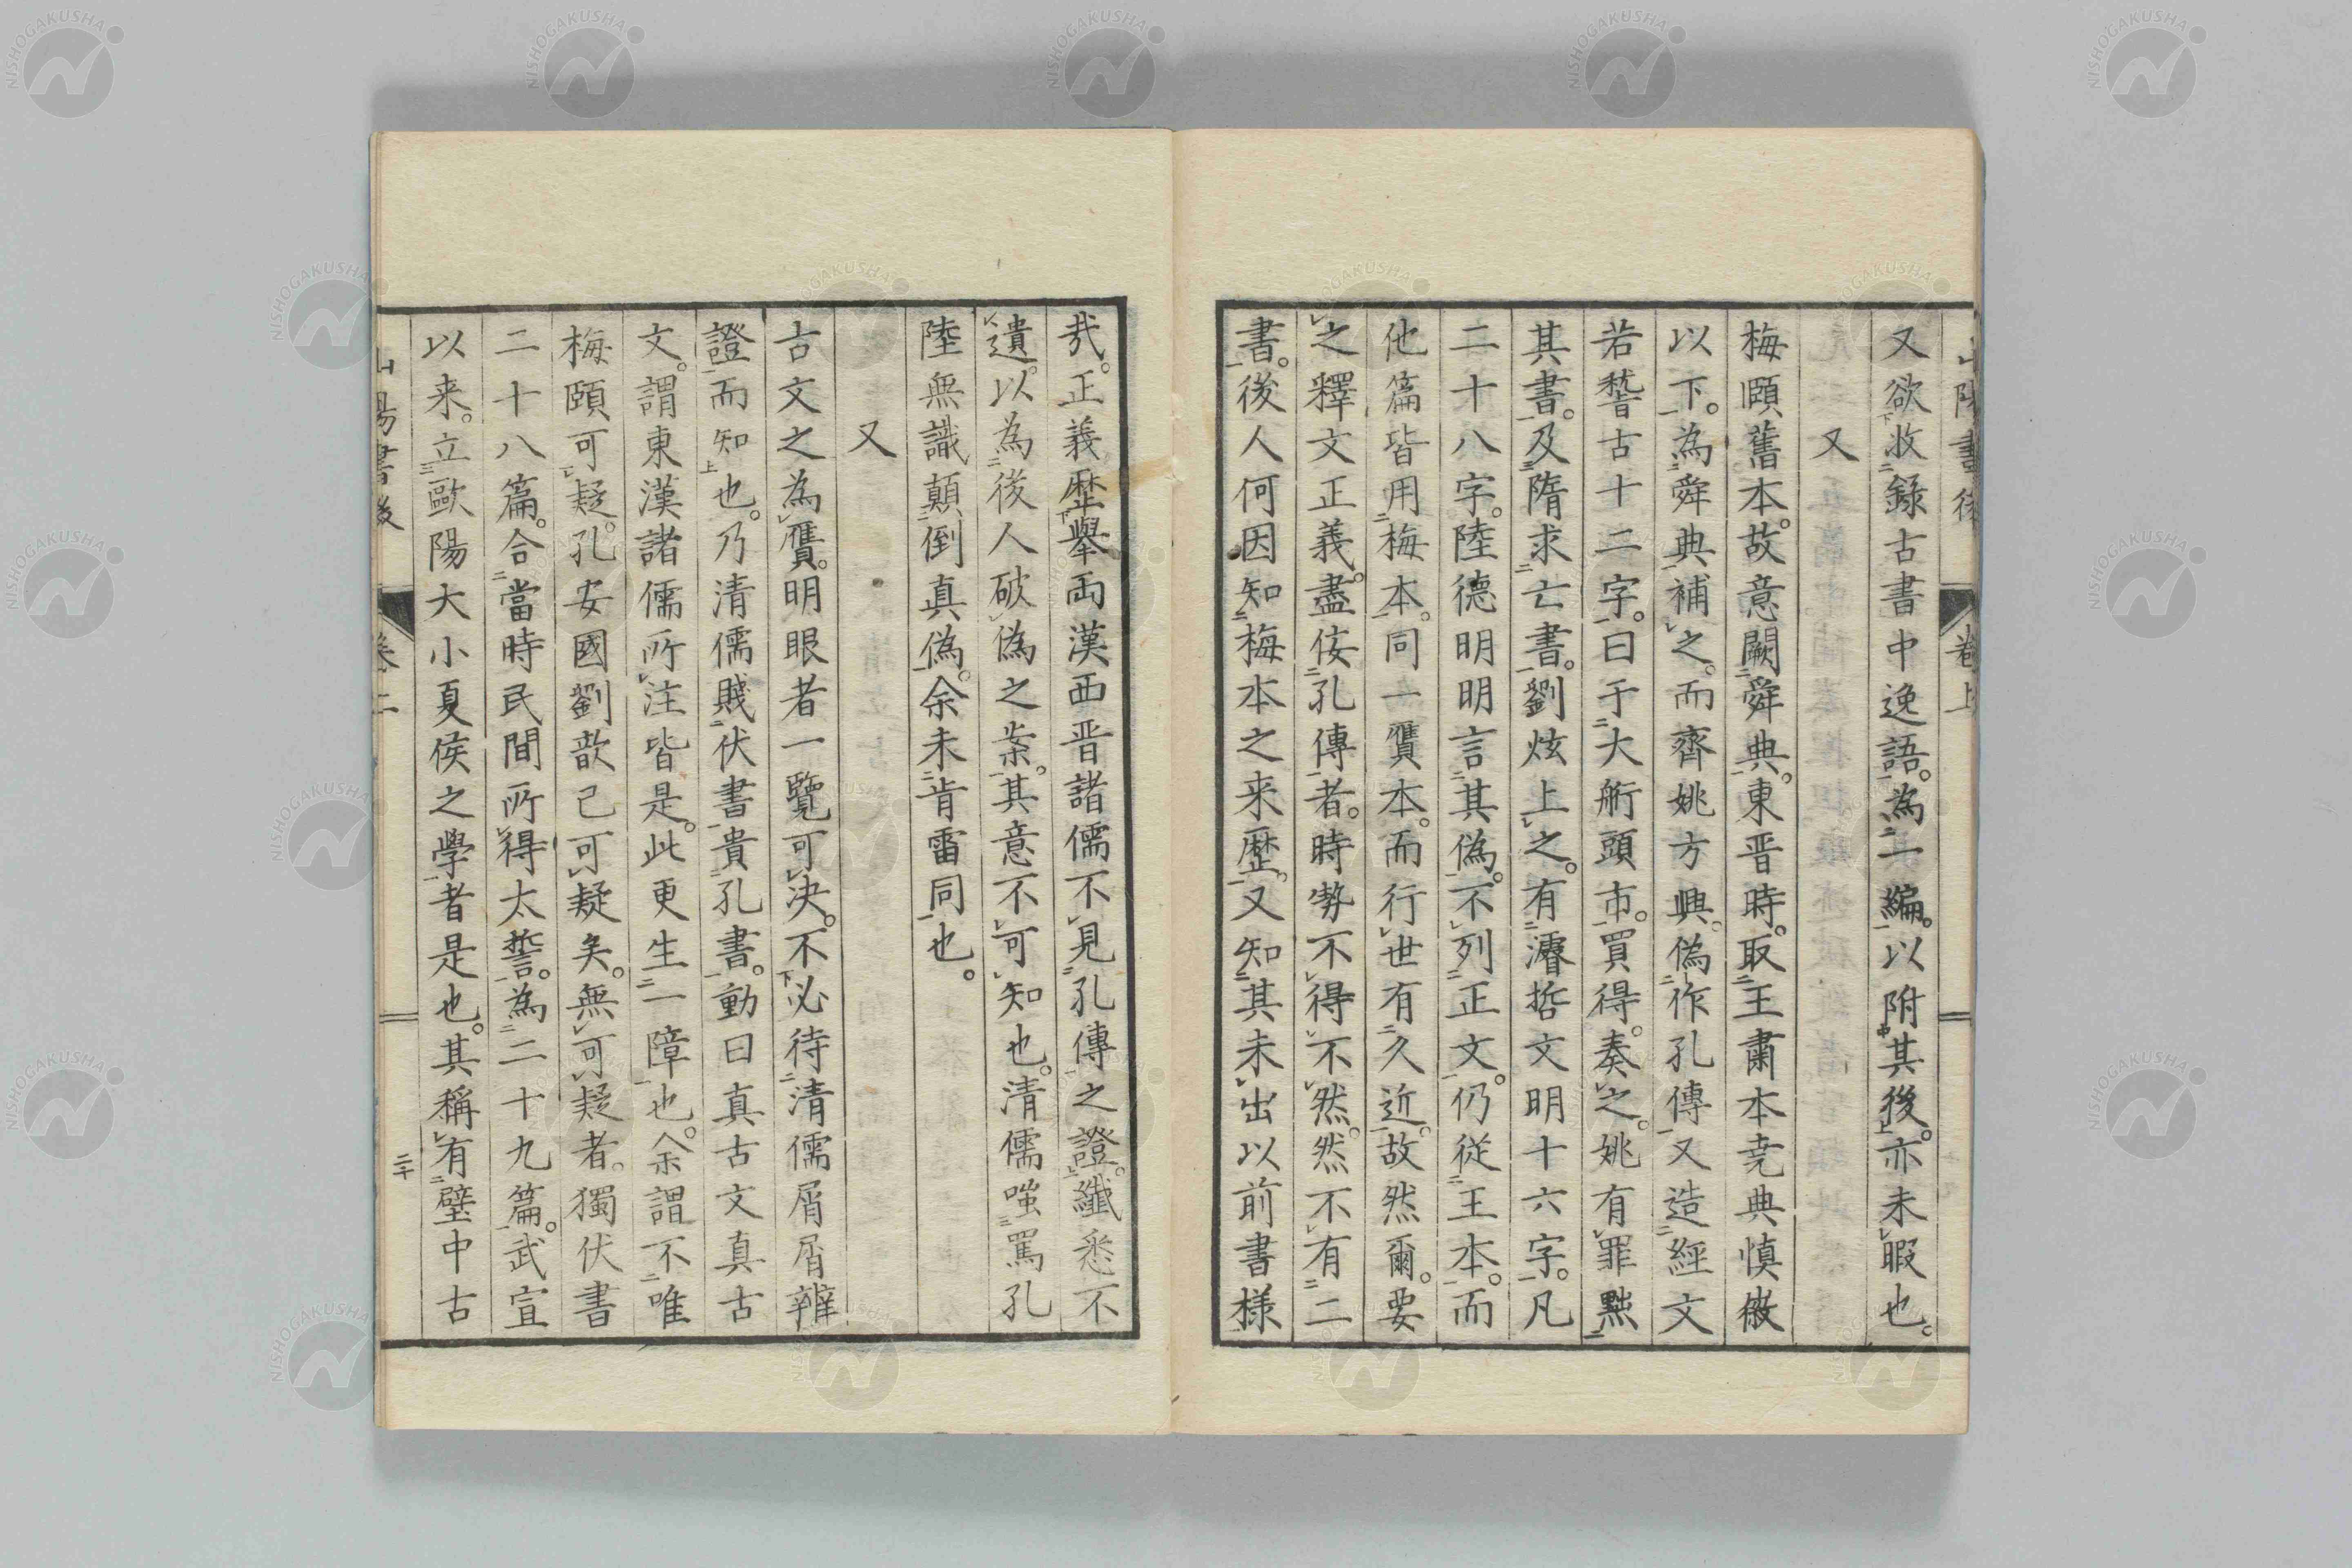 又欲收錄古書中逸語。為一編。以附其後。亦未暇也。
又
梅頤舊本。故意闕舜典。東晋時。取王肅本尭典慎徽
以下。為舜典補之。而齊姚方興。偽作孔傳又造經文
若𥡴古十二字。曰于大航頭市。買得。奏之。姚有罪黜
其書。及隋求亡書。劉炫上之。有濬哲文明十六字。凡
二十八字。陸德明明言其偽。不列正文。仍從王本。而
他篇皆用梅本。同一贋本。而行世有久近。故然爾。要
之釋文正義。盡侫孔傳者。時勢不得不然。然不有二
書。後人何因知梅本之来歷。又知其未出以前書様
哉。正義歷舉両漢西晋諸儒不見孔傳之證。纖悉不
遺。以為後人破偽之案。其意不可知也。清儒嗤罵孔
陸無識顛倒真偽。余未肯雷同也。
又
古文之為贋。明眼者一覽可决。不必待清儒屑屑辨
證而知也。乃清儒賤伏書貴孔書。動曰真古文真古
文。謂東漢諸儒所注皆是。此更生一障也。余謂不唯
梅頤可疑。孔安國劉歆己可疑矣。無可疑者。獨伏書
二十八篇。合當時民間所得太誓。為二十九篇。武宣
以来。立歐陽大小夏侯之學者是也。其稱有壁中古
山陽書後
卷上
二十
NISHOGAKUSHA